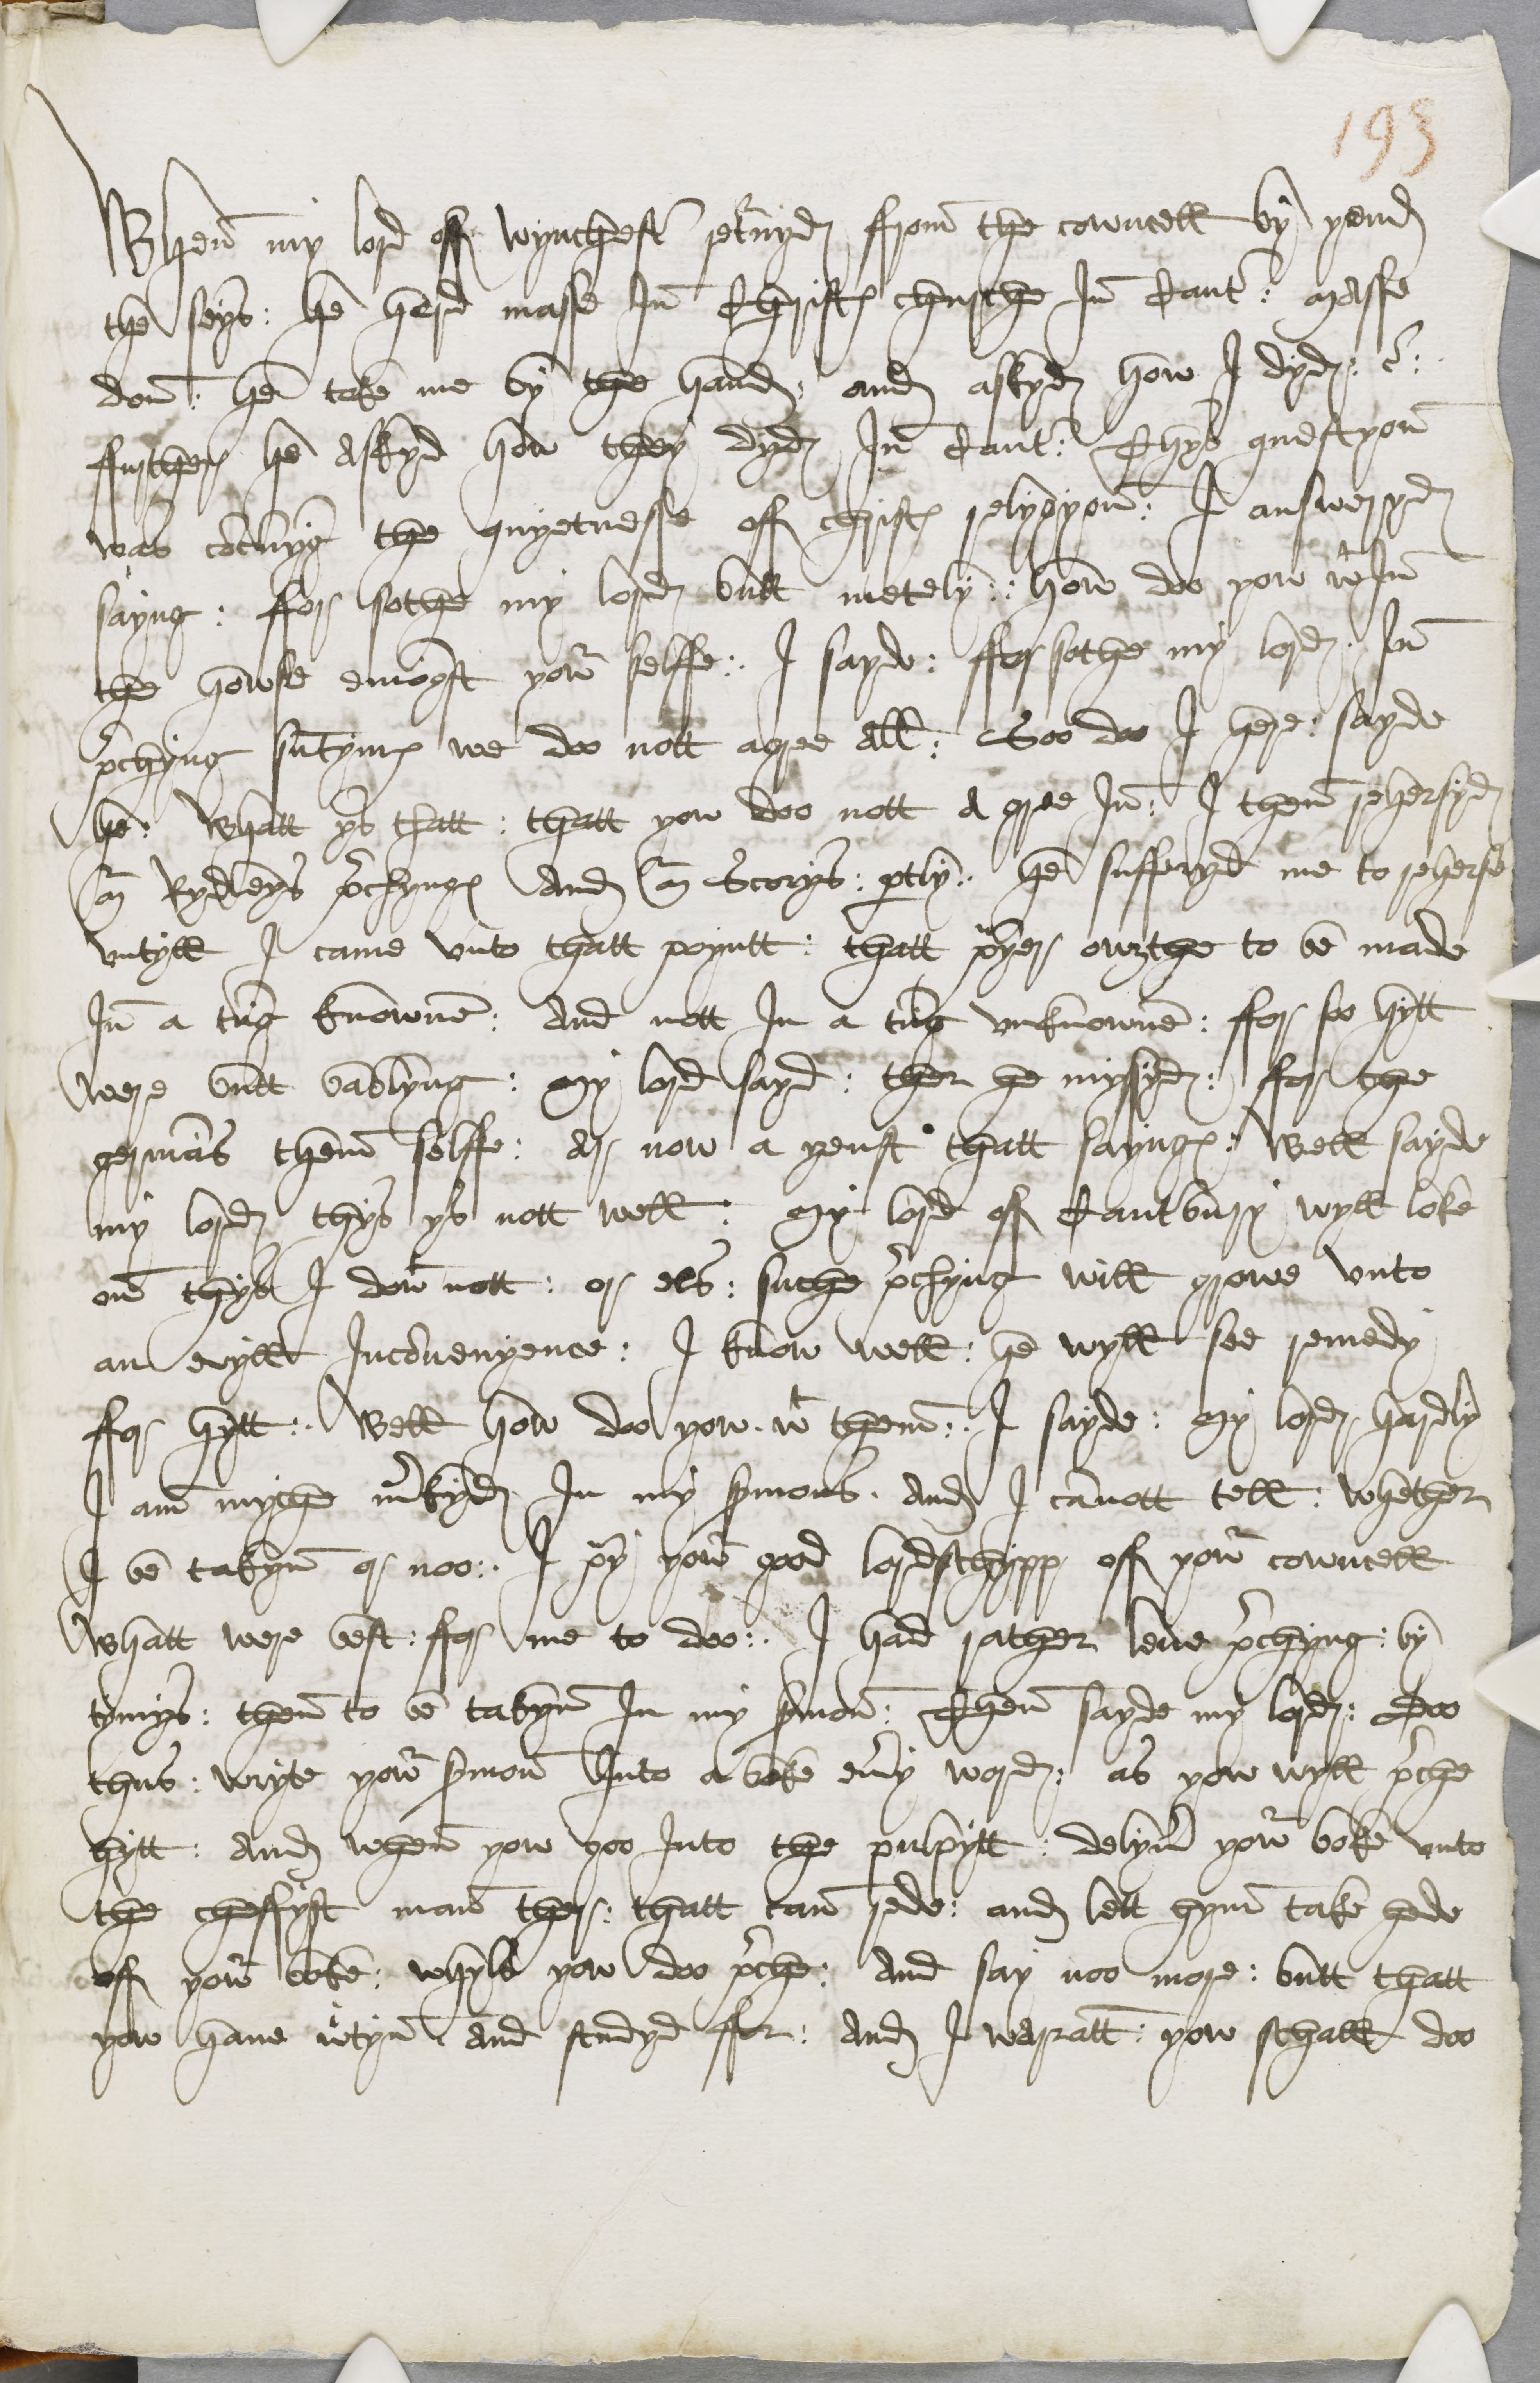 193
When my lord off wynchest' ret'nyd from the cowncell by yend
the seys: he herd masse In Christs churche In Cant': Masse
don: he toke me by the hand: and askyd how I dyd: &c:
further he Askyd how they dyd In Cant': Thys questyon
was cōc'nyg the quyetnesse off christs relygyon: I answeryd
sayng: for sothe my lord butt metely: how doo yow wt In
the howse emōgst your selffe: I sayde: for sothe my lord: In
p'chyng sūtyms we doo nott agree All: Soo doo I here: sayde
he: Whatt ys thatt: thatt yow doo nott A gree In: I then rehersyd
M Rydleys p'chyngs And M Scorys: ptly: he sufferyd me to reherse
untyll I came unto thatt poyntt: thatt p'yer owzthe to be made
In a tūg knowne: And nott In a tūg unknowne: for soo hytt
were butt bablyng: My lord sayd: ther he myssyd: for the
germās them selffe: Ar now a yenst thatt sayngs: Well sayde
my lord thys ys nott well: My lord off Cant'bury wyll loke
on thys I dowt nott: or els: suche p'chyng will growe unto
an evyll Incōvenyence: I know well: he wyll see remedy
for hytt: Well how doo yow wt them: I sayde: My lord hardly
I am myche m'kyd In my s'mons. And I cānott tell: whether
I be takyn or noo: I p'y your good lordschypp off your cowncell
Whatt were best: for me to doo: I had rather leve p'chyng: by
tymys: then to be takyn In my s'mon: Then sayde my lord: Doo
thus: wryte your s'mon Into a boke ev'y word: as yow wyll p'che
hytt: And when yow goo Into the pulpytt: delyv' your boke unto
the cheffyst man ther: thatt can rede: and lett hym take hede
off your boke: whyls yow doo p'che: And say noo more: butt thatt
yow have wtyn And studyd for: And I warātt: yow schall doo